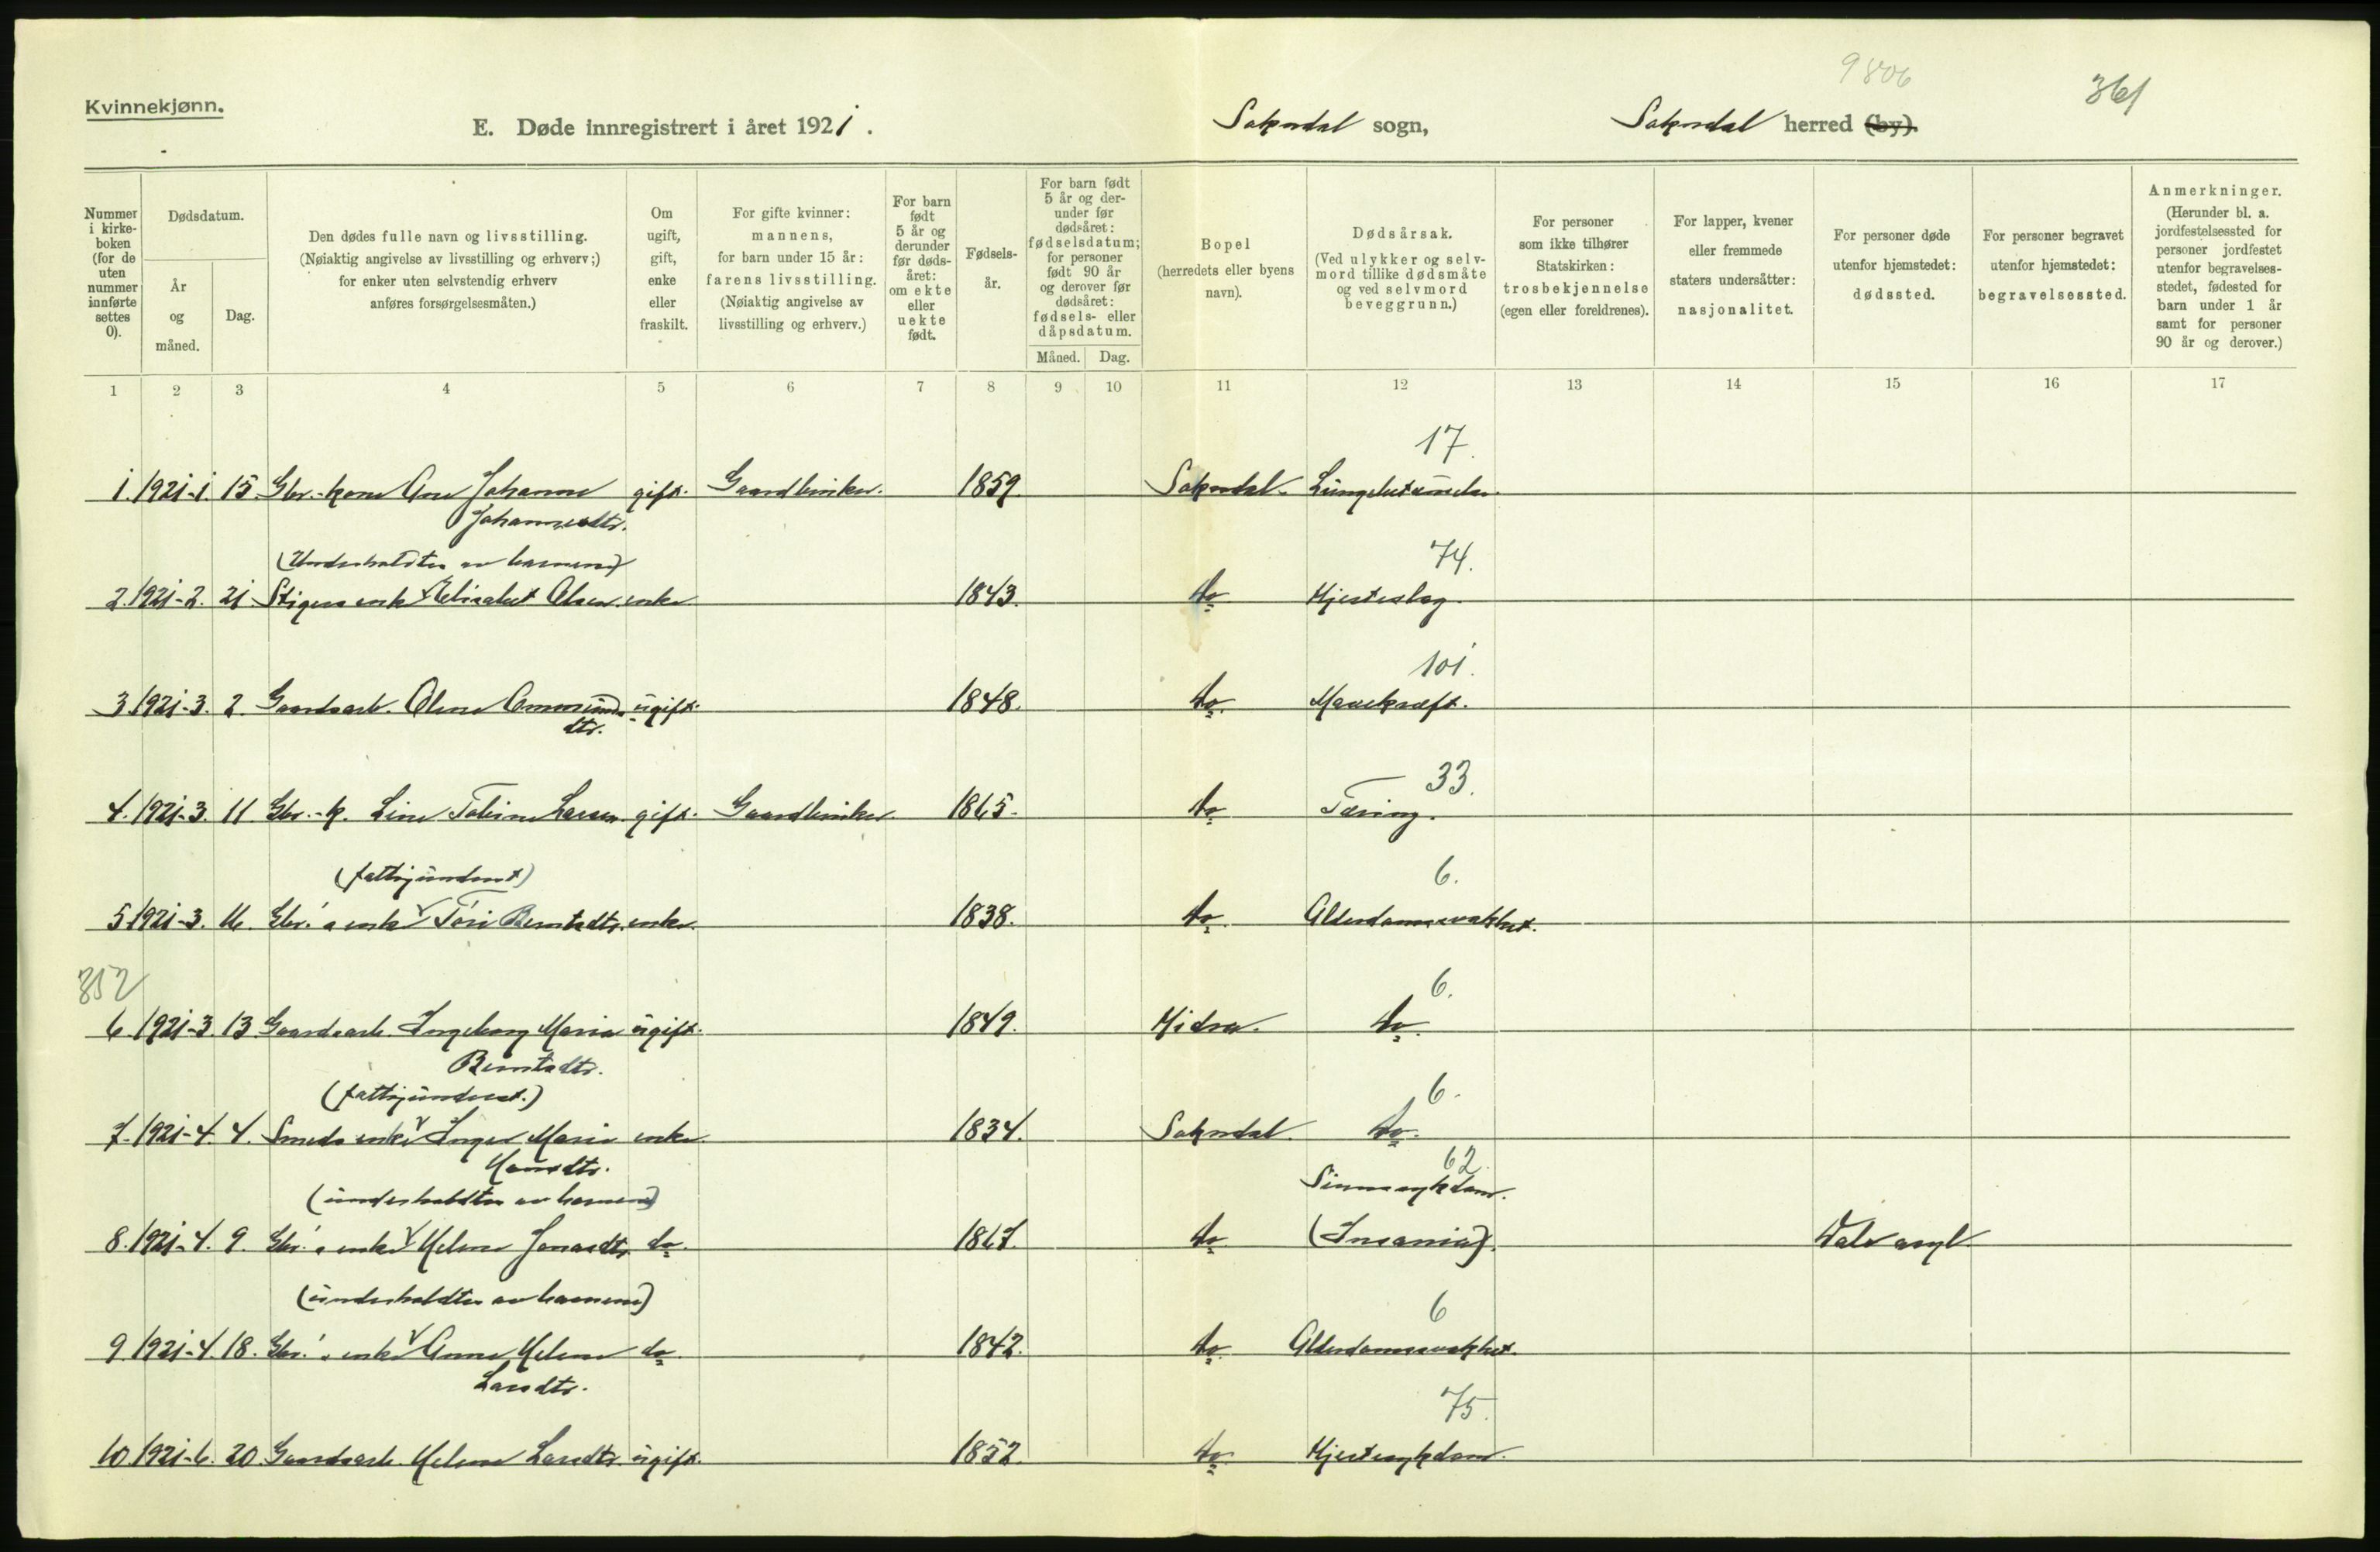 9806
361
Kvinnekjønn.
E. Døde innregistrert i året 1921. Sokndal sogn, Sokndal herred (by).
Nummer i kirkeboken (for de uten nummer innførte settes 0).
Dødsdatum.
År og måned.
Dag.
Den dødes fulle navn og livsstilling. (Nøiaktig angivelse av livsstilling og erhverv;) for enker uten selvstendig erhverv anføres forsørgelsesmåten.)
Om ugift, gift, enke eller fraskilt.
For gifte kvinner: mannens, for barn under 15 år: farens livsstilling. (Nøiaktig angivelse av livsstilling og erhverv.)
For barn født 5 år og derunder før dødsåret: om ekte eller uekte født.
Fødselsår.
For barn født 5 år og derunder før dødsåret: fødselsdatum; for personer født 90 år og derover før dødsåret: fødsels- eller dåpsdatum.
Måned. Dag.
Bopel (herredets eller byens navn).
Dødsårsak. (Ved ulykker og selvmord tillike dødsmåte og ved selvmord beveggrunn.)
For personer som ikke tilhører Statskirken: trosbekjennelse (egen eller foreldrenes).
For lapper, kvener eller fremmede staters undersåtter: nasjonalitet.
For personer døde utenfor hjemstedet: dødssted.
For personer begravet utenfor hjemstedet: begravelsessted.
Anmerkninger. (Herunder bl. a. jordfestelsessted for personer jordfestet utenfor begravelsesstedet, fødested for barn under 1 år samt for personer 90 år og derover.)
1 2 3 4 5 6 7 8 9 10 11 12 13 14 15 16 17
17.
1. 1921-1 15. Gbr.-kone Ane Johanne gift. Gaardbruker. 1859. Sokndal. Lungebetændelse.
Johannesdtr.
(Underholdtes av barnene) 74.
2. 1921-2. 21. Stigers enke Elisabet Olsen. enke. 1843. do Hjerteslag.
101.
3. 1921-3. 2. Gaardsarb. Olene Ommunds ugift. 1848. do. Mavekræft.
dtr.
33.
4. 1921-3. 11. Gbr.-k. Line Tobine Larsen. gift. Gaardbruker 1865. do Tæring.
(fattigunderst) 6.
5. 1921-3. 16. Gbr.'s enke Tori Berntsdtr. enke. 1838. do. Alderdomssvakhet.
352
6.
6. 1921-3. 13. Gaardsarb. Ingeborg Maria ugift. 1849. Hidra. do.
Berntsdtr.
(fattigunderst.) 6.
7. 1921-4. 4. Smeds enke Inger Marie enke. 1834. Sokndal. do.
Hansdtr. 62.
(underholdtes av barnene) Sinnssykdom.
8. 1921-4. 9. Gbr.'s enke Helene Jonasdtr. do. 1867. do (Insania). Dale asyl.
(underholdtes av barnene) 6
9. 1921-4. 18. Gbr.'s enke Anne Helene do. 1842. do. Alderdomssvakhet.
Larsdtr.
75.
10. 1921-6. 20. Gaardsarb. Helene Larsdtr. ugift. 1852. do. Hjertesykdom.